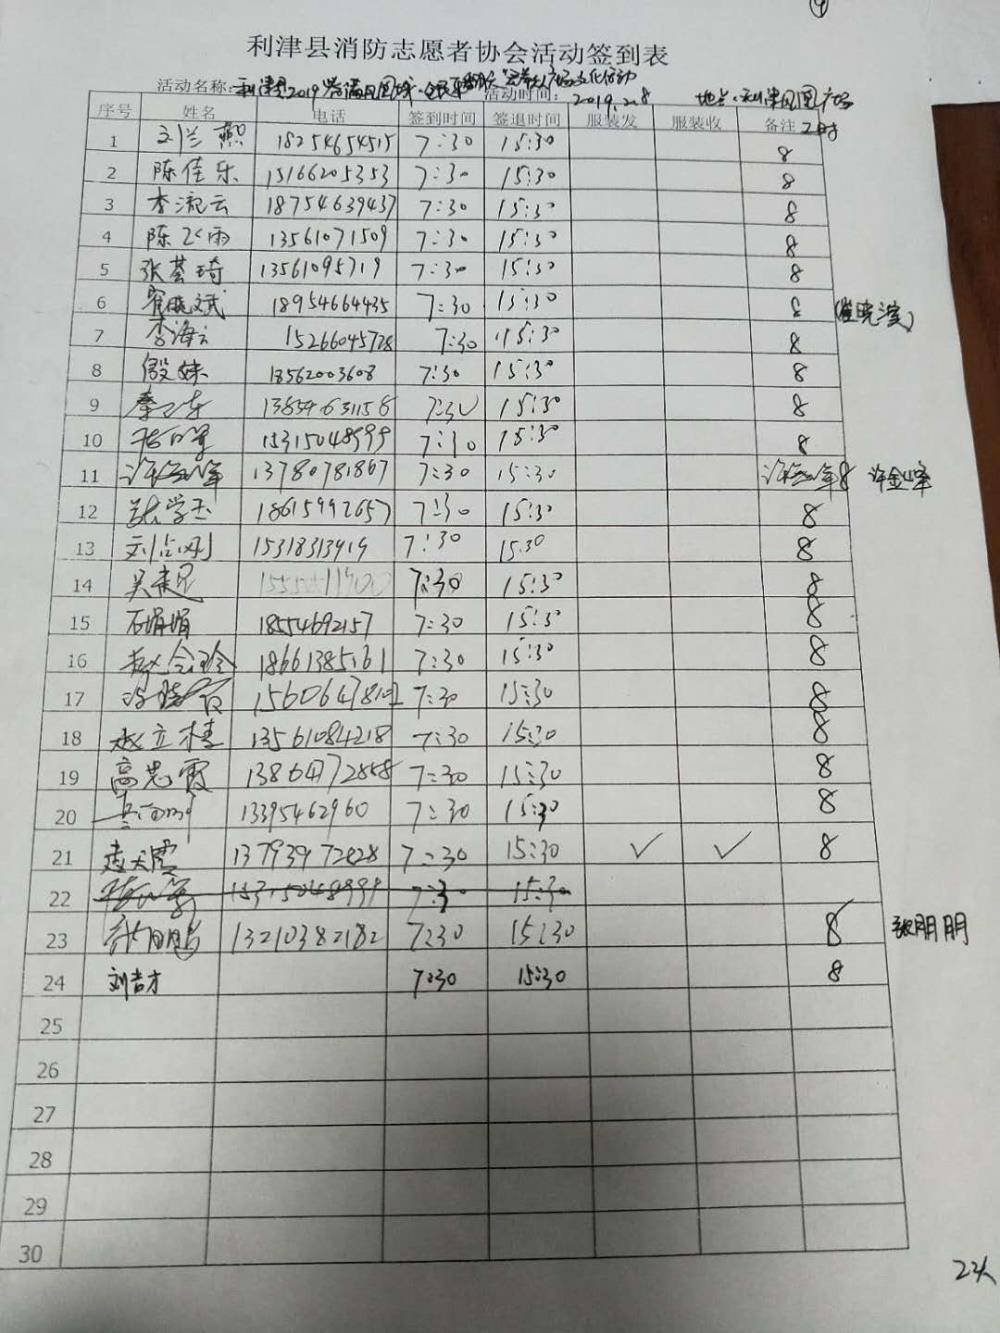 ④
利津县消防志愿者协会活动签到表
活动名称: 利津县2019 活动时间: 2019.2.8 地点:利津凤凰广场
序号 姓名 电话 签到时间 签退时间 服装发 服装收 备注 工时
1 刘兰燕 18254654515 7:30 15:30 8
2 陈佳乐 15166205353 7:30 15:30 8
3 李流云 18754639437 7:30 15:30 8
4 陈飞雨 13561071509 7:30 15:30 8
5 张荟琦 13561095719 7:30 15:30 8
6 18954664435 7:30 15:30 8
7 李海云 15266045728 7:30 15:30 8
8 殷姝 18562003608 7:30 15:30 8
9 13854631156 7:30 15:30 8
10 15315048999 7:30 15:30 8
11 许金峰 13780781867 7:30 15:30 许金峰 8 许金峰
12 张学玉 18615992657 7:30 15:30 8
13 刘占刚 15318313919 7:30 15:30 8
14 7:30 15:30 8
15 石娟娟 18554692157 7:30 15:30 8
16 赵会玲 18661385161 7:30 15:30 8
17 7:30 15:30 8
18 赵立梅 13561084218 7:30 15:30 8
19 高忠霞 13864772858 7:30 15:30 8
20 13395462960 7:30 15:30 8
21 赵天霞 13793972828 7:30 15:30 ✓ ✓ 8
22 15315048999 7:30 15:30
23 张朋朋 13210382182 7:30 15:30 8 张朋朋
24 刘吉才 7:30 15:30 8
25
26
27
28
29
30
23人